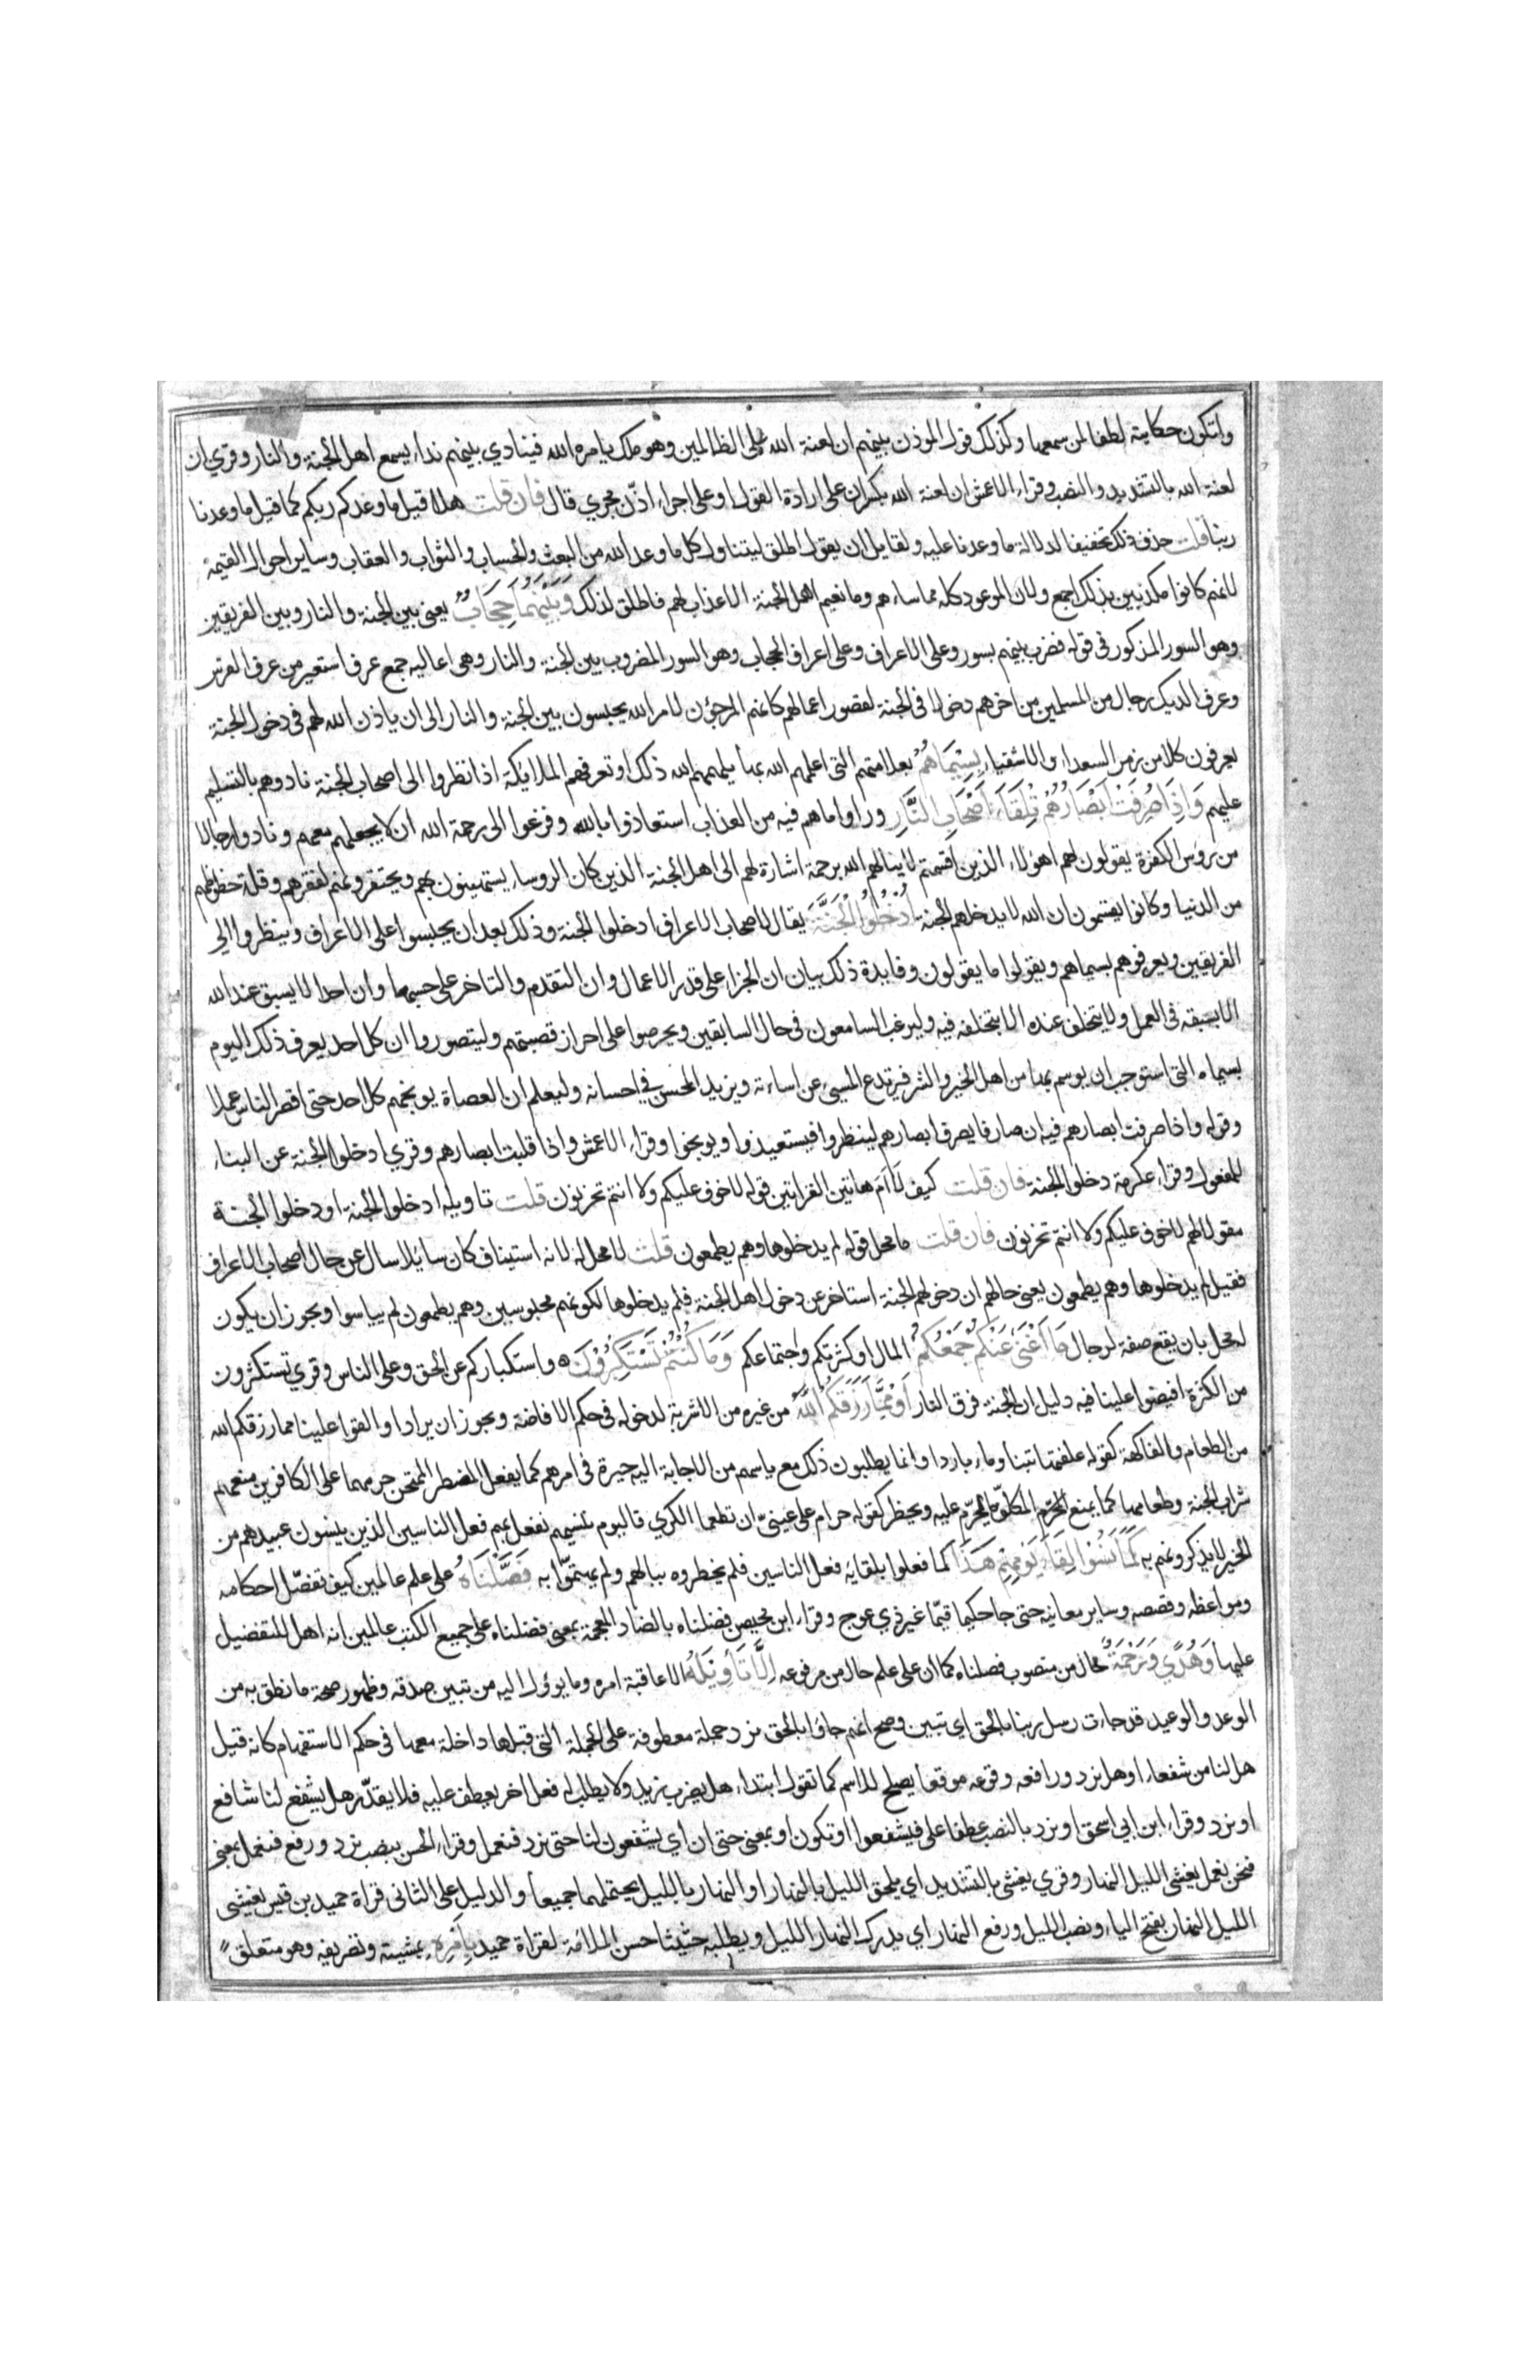 ولتكون حكايته لطفا لمن سمعها وكذلك قول المؤذن بينهم ان لعنة الله على الظالمين وهو ملك يامره الله فينادي بينهم نداء يسمع اهل الجنة والنار وقري ان
لعنة الله بالتشديد والنصب وقراء الاعمش ان لعنة الله بكسر ان على ارادة القول او على اجراء اذّن مجري قال فان قلت هلا قيل ما وعدكم ربكم كما قيل ما وعدنا
ربنا قلت حذف ذلك تخفيفا لدلالة ما وعدنا عليه ولقايل ان يقول اطلق ليتناول كل ما وعد الله من البعث والحساب والثواب والعقاب وساير احوال القيمة
لانهم كانوا مكذبين بذلك اجمع ولان الموعود كله مما ساءهم وما نعيم اهل الجنة الا عذاب لهم فاطلق لذلك وَبَيْنَهُمَا حِجَابٌ يعني بين الجنة والنار وبين الفريقين
وهو السور المذكور في قوله فضرب بينهم بسور وعلى الاعراف وعلى اعراف الحجاب وهو السور المضروب بين الجنة والنار وهي اعاليه جمع عرف استعير من عرف الفرس
وعرف الديك رجال من المسلمين من اخرهم دخولا في الجنة لقصور اعمالهم كانهم المرجؤن لامر الله يحبسون بين الجنة والنار الى ان ياذن الله لهم في دخول الجنة
يعرفون كلا من زمر السعداء والاشقياء بِسِيْمَاهُمْ بعلامتهم التي اعلمهم الله بها يلهمهم الله ذلك او تعرفهم الملايكة اذا نظروا الى اصحاب الجنة نادوهم بالتسليم
عليهم وَاِذَا صُرِفَتْ اَبْصَارُهُمْ تِلْقَاءَ اَصْحَابِ النَّارِ وراوا ما هم فيه من العذاب استعاذوا بالله وفزعوا الى رحمة الله ان لا يجعلهم معهم ونادوا رجالا
من رؤس الكفرة يقولون لهم اهؤلاء الذين اقسمتم لا ينالهم الله برحمة اشارة لهم الى اهل الجنة الذين كان الروساء يستهينون بهم ويحتقرونهم لفقرهم وقلة حظوظهم
من الدنيا وكانوا يقسمون ان الله لا يدخلهم الجنة اُدْخُلُوا الْجَنَّةَ يقال لاصحاب الاعراف ادخلوا الجنة وذلك بعد ان يحبسوا على الاعراف وينظروا الى
الفريقين ويعرفوهم بسيماهم ويقولوا ما يقولون وفايدة ذلك بيان ان الجزاء على قدر الاعمال وان التقدم والتاخر على حسبها وان احدا لا يسبق عند الله
الا بسبقه في العمل ولا يتخلف عنده الا بتخلفه فيه وليرغب السامعون في حال السابقين ويحرصوا على احراز قصبتهم وليتصوروا ان كل احد يعرف ذلك اليوم
بسيماه التي استوجب ان يوسم بها من اهل الخير والشر فيرتدع المسيء عن اساءته ويزيد المحسن في احسانه وليعلم ان العصاة يوبخهم كل احد حتى اقصر الناس عملا
وقوله واذا صرفت ابصارهم فيه ان صارفا يصرف ابصارهم لينظروا فيستعيذوا ويوبخوا وقراء الاعمش واذا قلبت ابصارهم وقري ادخلوا الجنة عن البناء
للمفعول وقراء عكرمة دخلوا الجنة فان قلت كيف لآام هاتين القراتين قوله لا خوف عليكم ولا انتم تحزنون قلت تاويله ادخلوا الجنة او دخلوا الجنة
مقولا لهم لا خوف عليكم ولا انتم تحزنون فان قلت ما محل قوله لم يدخلوها وهم يطمعون قلت لا محل له لانه استيناف كان سايلا سال عن حال اصحاب الاعراف
فقيل لم يدخلوها وهم يطمعون يعني حالهم ان دخولهم الجنة استاخر عن دخول اهل الجنة فلم يدخلوها لكونهم محبوسين وهم يطمعون لم يياسوا ويجوز ان يكون
له محل بان يقع صفة لرجال مَا اَغْنَى عَنْكُمْ جَمْعُكُمْ المال او كثرتكم واجتماعكم وَمَا كُنْتُمْ تَسْتَكْبِرُوْنَ واستكباركم عن الحق وعلى الناس وقري تستكثرون
من الكثرة افيضوا علينا فيه دليل ان الجنة فرق النار اَوْ مِمَّا رَزَقَكُمُ اللّٰهُ من غيره من الاشربة لدخوله في حكم الافاضة ويجوز ان يراد او القوا علينا مما رزقكم الله
من الطعام والفاكهة كقوله علفتها تبنا وماء باردا وانما يطلبون ذلك مع ياسهم من الاجابة اليه حيرة في امرهم كما يفعل المضطر الممتحن حرمهما على الكافرين منعهم
شراب الجنة وطعامها كما يمنع المكلّف ما يحرّم عليه ويحظر كقوله حرام على عينيّ ان تطعما الكري فاليوم ننسيهم نفعل بهم فعل الناسين الذين ينسون عبيدهم من
الخير لا يذكرونهم به كَمَا نَسُوْا لِقَاءَ يَوْمِهِمْ هَذَا كما فعلوا بلقايه فعل الناسين فلم يخطروه ببالهم ولم يهتمّوا به فَصَّلْنَاهُ على علم عالمين كيف نفصّل احكامه
ومواعظه وقصصه وساير معانيه حتى جا حكيما قيّما غير ذي عوج وقراء ابن محيصن فضلناه بالضاد المعجمة بمعني فضلناه على جميع الكتب عالمين انه اهل للتفضيل
عليها وَهُدًي وَرَحْمَةً حال من منصوب فصلناه كما ان على علم حال من مرفوعه اِلَّا تَأْوِيْلَهُ الا عاقبة امره وما يوؤل اليه من تبين صدقه وظهور صحة ما نطق به من
الوعد والوعيد قد جاءت رسل ربنا بالحق اي تبين وصح انهم جاؤا بالحق نرد جملة معطوفة على الجملة التي قبلها داخلة معها في حكم الاستفهام كانه قيل
هل لنا من شفعاء او هل نرد ورافعه وقوعه موقعا يصلح للاسم كما تقول ابتداء هل يضرب زيد ولا يطلب له فعل اخر يعطف عليه فلا يقدّر هل يشفع لنا شافع
او نرد وقراء ابن ابي اسحق او نرد بالنصب عطفا على فيشفعوا او تكون او بمعنى حتى ان اي يشفعون لنا حتى نرد فنعمل وقراء الحسن بنصب نرد ورفع فنعمل بمعنى
فنحن نعمل يغشى الليل النهار وقري يغشى بالتشديد اي يلحق الليل بالنهار او النهار بالليل يحتملهما جميعا والدليل على الثاني قراة حميد بن قيس يغيشى
الليل النهار بفتح الياء ونصب الليل ورفع النهار اي يدرك النهار الليل ويطلبه حثيثا حسن الملائمة لقراة حميد بِاَمْرِهِ بمشيته وتصريفه وهو متعلق